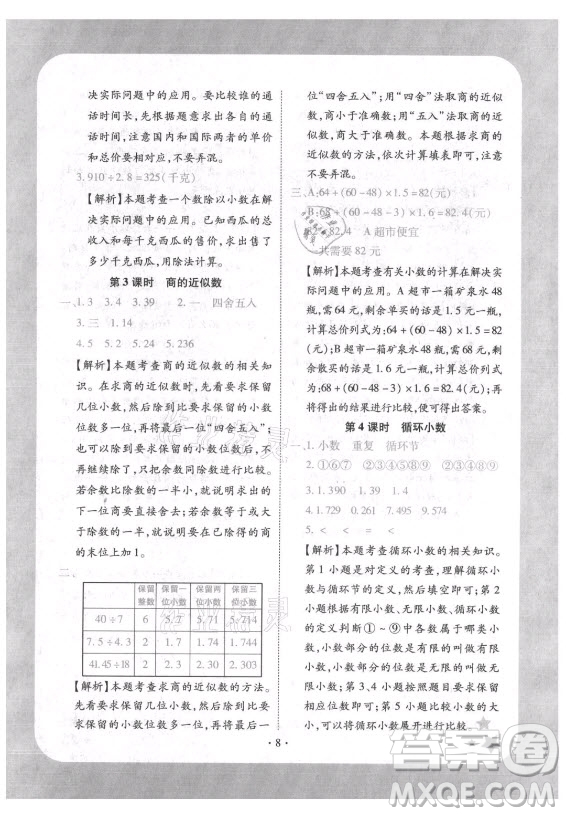 决实际问题中的应用。要比较谁的通
话时间长，先根据题意求出各自的通
话时间，注意国内和国际两者的单价
和总价要相对应，不要弄混。
3. 910÷2.8=325(千克)
【解析】本题考查一个数除以小数在解
决实际问题中的应用。已知西瓜的总价
以及每千克西瓜的售价，求出售出了
多少千克西瓜，用除法计算。
第3课时 商的近似数
一、1. 3 3.4 3.39 2. 一 四舍五入
3. 三 1.14
4. 5 5.2 5.24 5.236
【解析】本题考查商的近似数的相关知
识。在求商的近似数时，先看要求保留
几位小数，然后除到比要求保留的小数
位数多一位，再根据“四舍五入”求近
似数；或者除到要求保留的小数位数后，
不再继续除了，只把余数同除数进行比较。
若余数比除数的一半小，就说明求出的
下一位商要直接舍去；若余数等于或大
于除数的一半，就要在已除得的商
的末位上加1。
二、
保留整数 保留一位小数 保留两位小数 保留三位小数
40÷7 6 5.7 5.71 5.714
7.5÷4.3 2 1.7 1.74 1.744
41.45÷18 2 2.3 2.30 2.303
【解析】本题考查求商的近似数的方法。
先看要求保留几位小数，然后除到比
要求保留的小数位数多一位，再将末
位“四舍五入”；用“四舍”法取商的近似
数，商小于准确数；用“五入”法取商的近
似数，商大于准确数。本题根据求商的近
似数的方法，依次计算填表即可。
三、A:64+(60-48)×1.5=82(元)
B:68+(60-48)×1.2=82.4(元)
82<82.4 A超市便宜
共需要82元
【解析】本题考查有关小数的计算在解决实
际问题中的应用。A超市一箱矿泉水48
瓶，需64元，剩余散买的话是1.5元一瓶，
共买60瓶，所以需要散买的瓶数是12瓶，
然后计算总价列式为:64+(60-48)×1.5=
82(元)；B超市一箱矿泉水48瓶，需68元，剩
余散买的话是1.6元一瓶，然后计算总价列式
为:68+(60-48)×1.2=82.4(元)；再
将得出的结果进行比较，即可得出答案。
第4课时 循环小数
一、1. 小数 重复 循环节
2. ①⑥⑦ ②③④⑤⑧⑨ ②③④⑧⑨
3. 1.390 4.497 9.529 7.574
4. 1.729 0.261 1.114 0.145
5. < < = >
【解析】本题考查循环小数的相关知识。
第1小题是对定义的考查，掌握循环小
数和循环节的定义，准确填写即可；第2
小题根据有限小数、无限小数、循环小
数的定义判断①~⑨中的数即可，注
意，小数部分的位数是有限的叫作有限
小数，小数部分的位数是无限的叫作无
限小数；第3、4小题按要求保留三位小
数即可；第5小题比较循环小数的大小，
可以将循环小数展开进行比较。
· 8 ·
答案卷
MXQE.COM